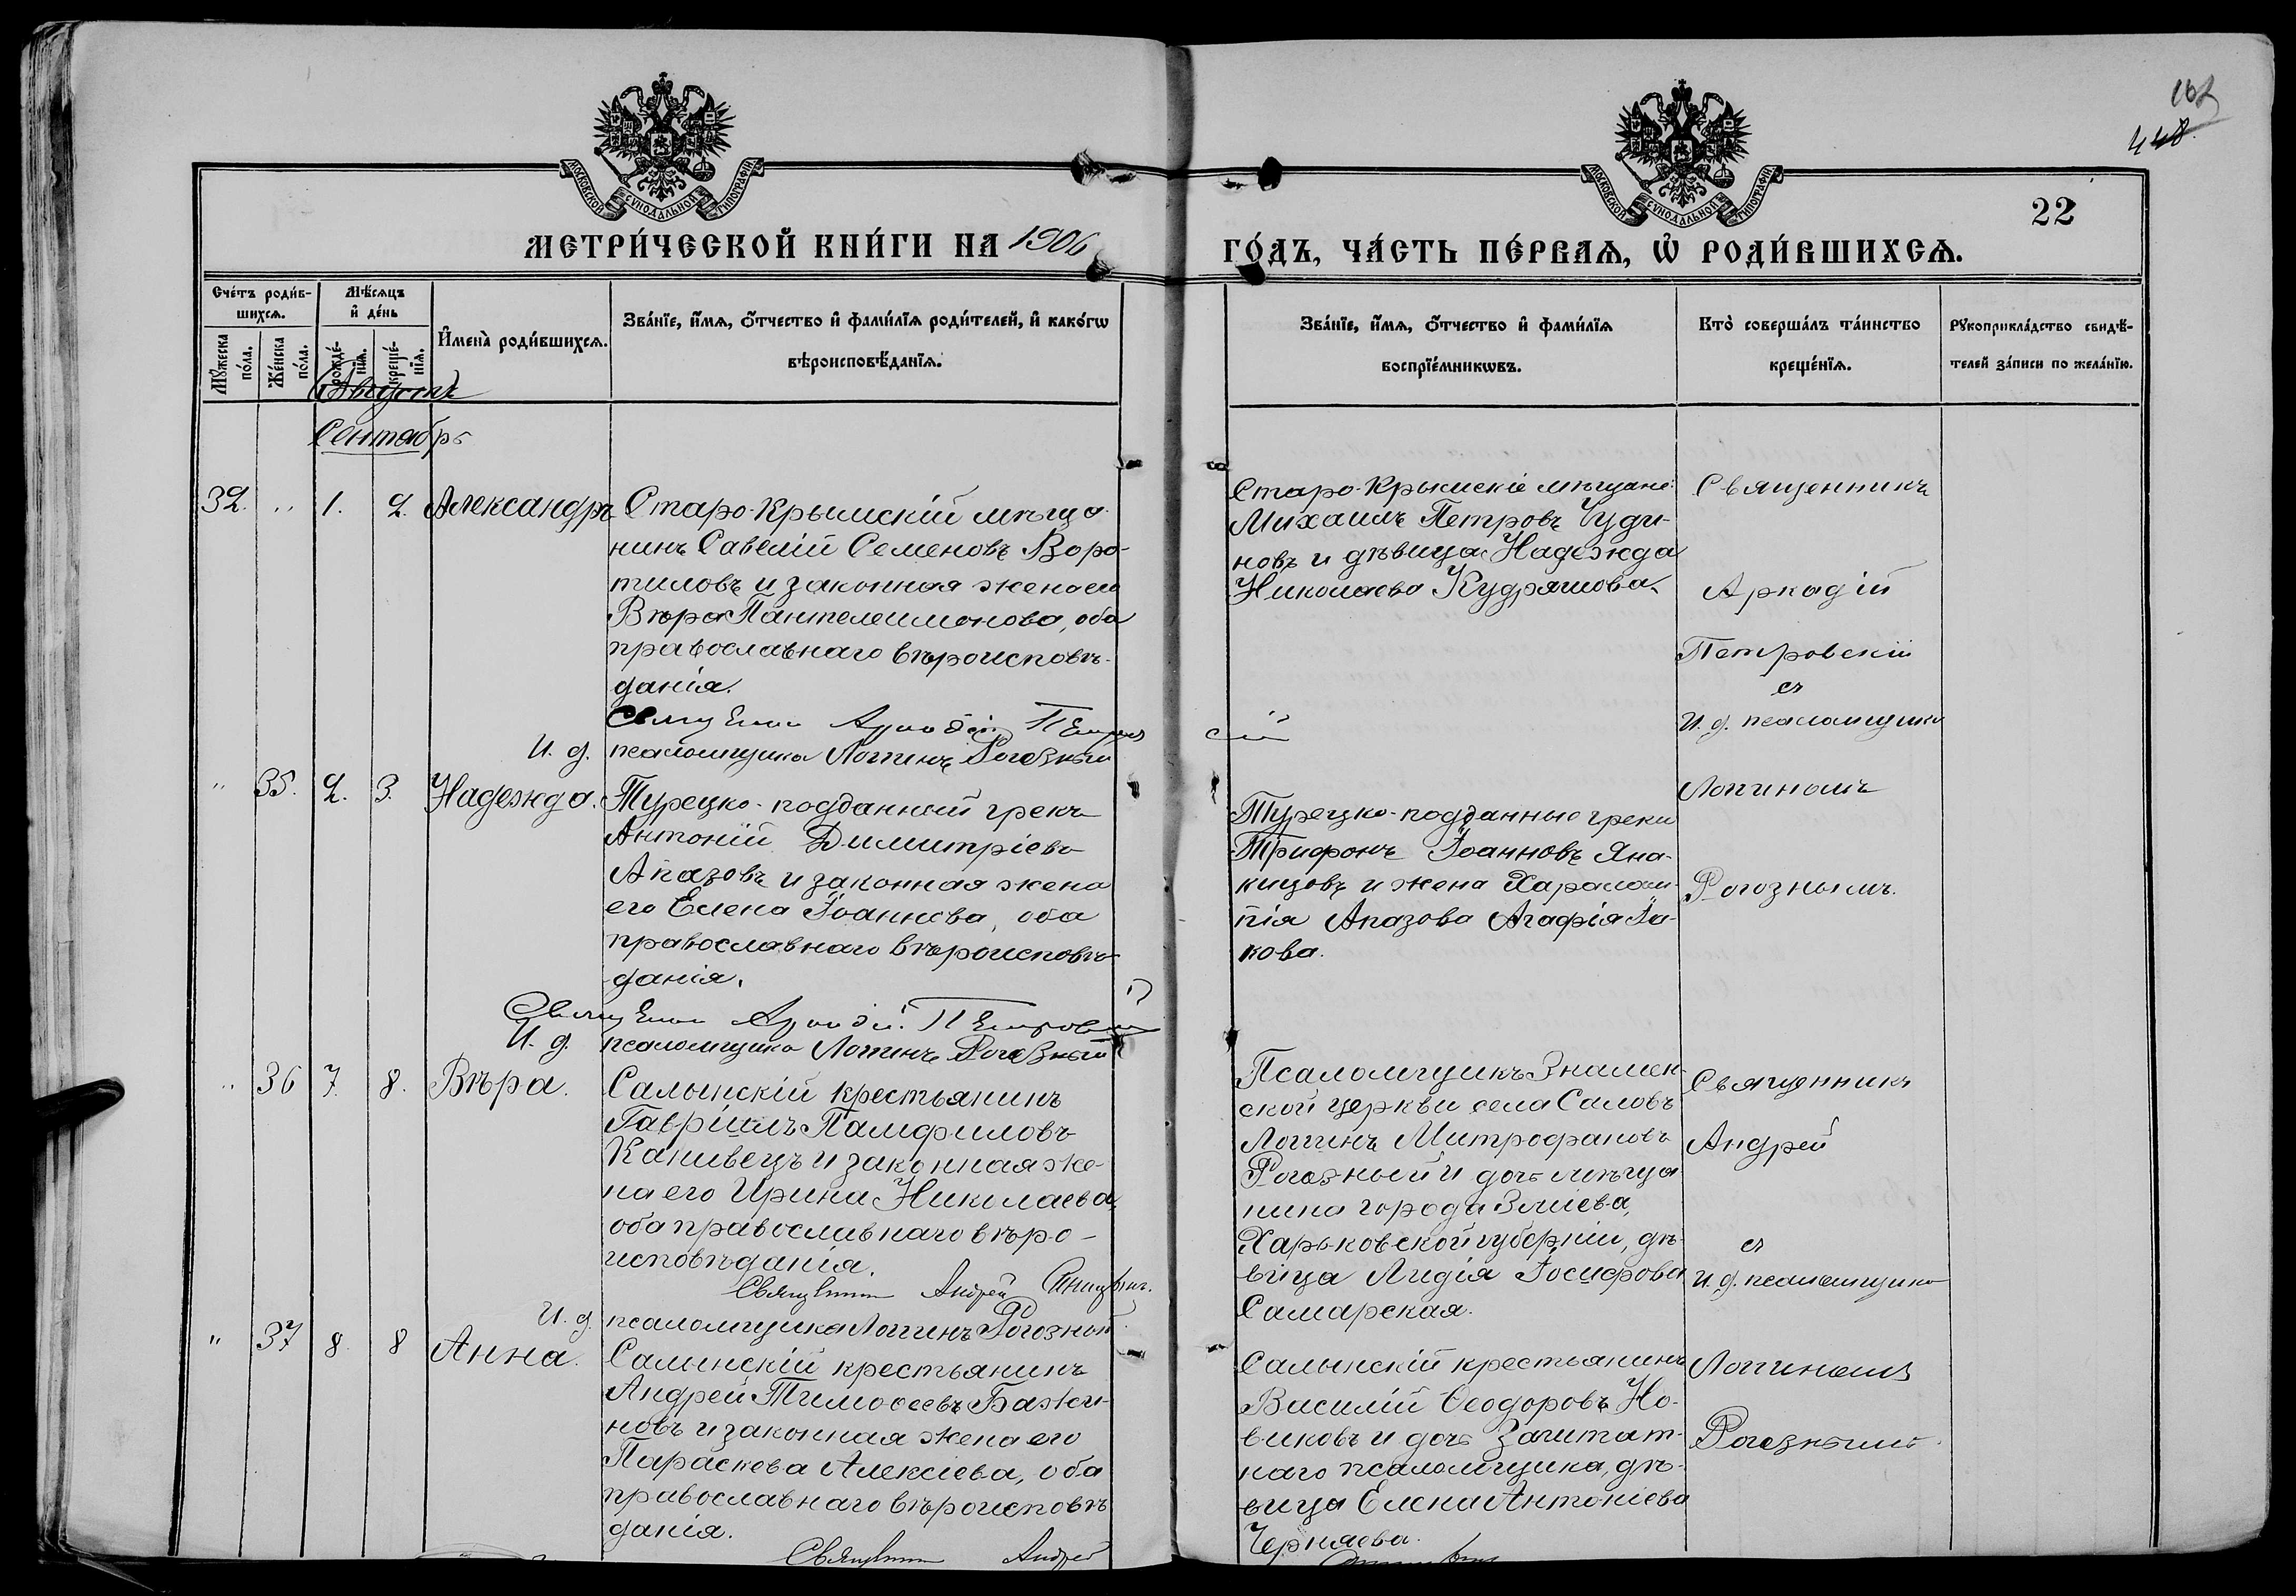 448.
22
МОСКОВСКОЙ СѴНОДАЛЬНОЙ ТИПОГРАФІИ
МОСКОВСКОЙ СѴНОДАЛЬНОЙ ТИПОГРАФІИ
МЕТРИ́ЧЕСКОЙ КНИ́ГИ НА 1906
ГО́ДЪ, ЧА́СТЬ ПЕ́РВАѦ, Ѡ҆ РОДИ́ВШИХСѦ.
Сче́тъ роди́в-
шихсѧ.
Мꙋ́жеска
по́ла.
Же́нска
по́ла.
Мѣ́сѧцъ
и҆ де́нь
рожде́-
нїѧ.
креще́-
нїѧ.
И҆мена̀ роди́вшихсѧ.
Зва́нїе, и҆́мѧ, ѻ҆́тчество и҆ фами́лїѧ роди́телей, и҆ како́гѡ
вѣроисповѣ́данїѧ.
Зва́нїе, и҆́мѧ, ѻ҆́тчество и҆ фами́лїѧ
воспрїе́мникѡвъ.
Кто̀ соверша́лъ та́инство
креще́нїѧ.
Рꙋкоприкла́дство свидѣ́-
телей за́писи по жела́нїю.
Августъ
Сентябрь
32. " 1. 2. Александръ
Старо-Крымскій мѣща-
нинъ Савелій Семеновъ Воро-
тиловъ и законная жена его
Вѣра Пантелеимонова, оба
православнаго вѣроисповѣ-
данія.
Священникъ Аркадій Петровскій
И. д. псаломщика Логгинъ Рогозный
Старо-Крымскіе мѣщане:
Михаилъ Петровъ Чуди-
новъ и дѣвица Надежда
Николаева Кудряшова.
Священникъ
Аркадій
Петровскій
съ
И. д. псаломщика
Логгиномъ
Рогознымъ.
" 35. 2. 3. Надежда.
Турецко-подданный грекъ
Антоній Димитріевъ
Апазовъ и законная жена
его Елена Іоаннова, оба
православнаго вѣроисповѣ-
данія.
Священникъ Аркадій Петровскій
И. д. псаломщика Логгинъ Рогозный
Турецко-подданные греки
Трифонъ Іоанновъ Яна-
кицовъ и жена Харалам-
пія Апазова Агафія Іа-
кова.
" 36 7. 8. Вѣра.
Салынскій крестьянинъ
Гавріилъ Памфиловъ
Канивецъ и законная же-
на его Ирина Николаева,
оба православнаго вѣро-
исповѣданія.
Священникъ Андрей
И. д. псаломщика Логгинъ Рогозный.
Псаломщикъ Знамен-
ской церкви села Саловъ
Логгинъ Митрофановъ
Рогозный и дочь мѣща-
нина города Зміева,
Харьковской губерніи, дѣ-
вица Лидія Іосифова
Самарская.
Священникъ
Андрей
съ
И. д. псаломщика
Логгиномъ
Рогознымъ.
" 37 8. 8 Анна.
Салынскій крестьянинъ
Андрей Тимоѳеевъ Бажи-
новъ и законная жена его
Параскева Алексіева, оба
православнаго вѣроисповѣ
данія.
Священникъ Андрей
Салынскій крестьянинъ
Василій Ѳеодоровъ Но-
виковъ и дочь заштат-
наго псаломщика, дѣ-
вица Елена Антоніева
Черняева.